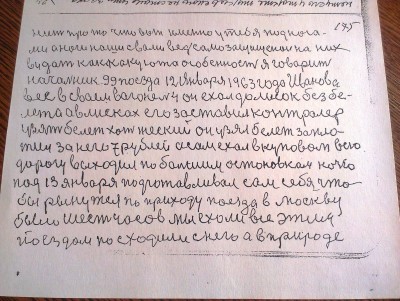 145
ним про то что вот именно у тебя под нога
ми а ноги наши сваливед самозащищеной на них
видат как какуюто особеность я говорит
начальник 99 поезда 12 Января 1963 года Иванова
вез в своем вагоне ну он ехал до мпск без бе-
лета а в писках его заставил контролер
узят белет хотческий он узял белет запло-
тил за него 7 рублей а сам ехал в куповом всю
дорогу выходил по большим остоновкам ночю
под 13 января подготавливал сам себя что-
бы рынутся по приходу поезда в москву
было шест часов мы ехоли все этим
поездом посходили с него а в природе